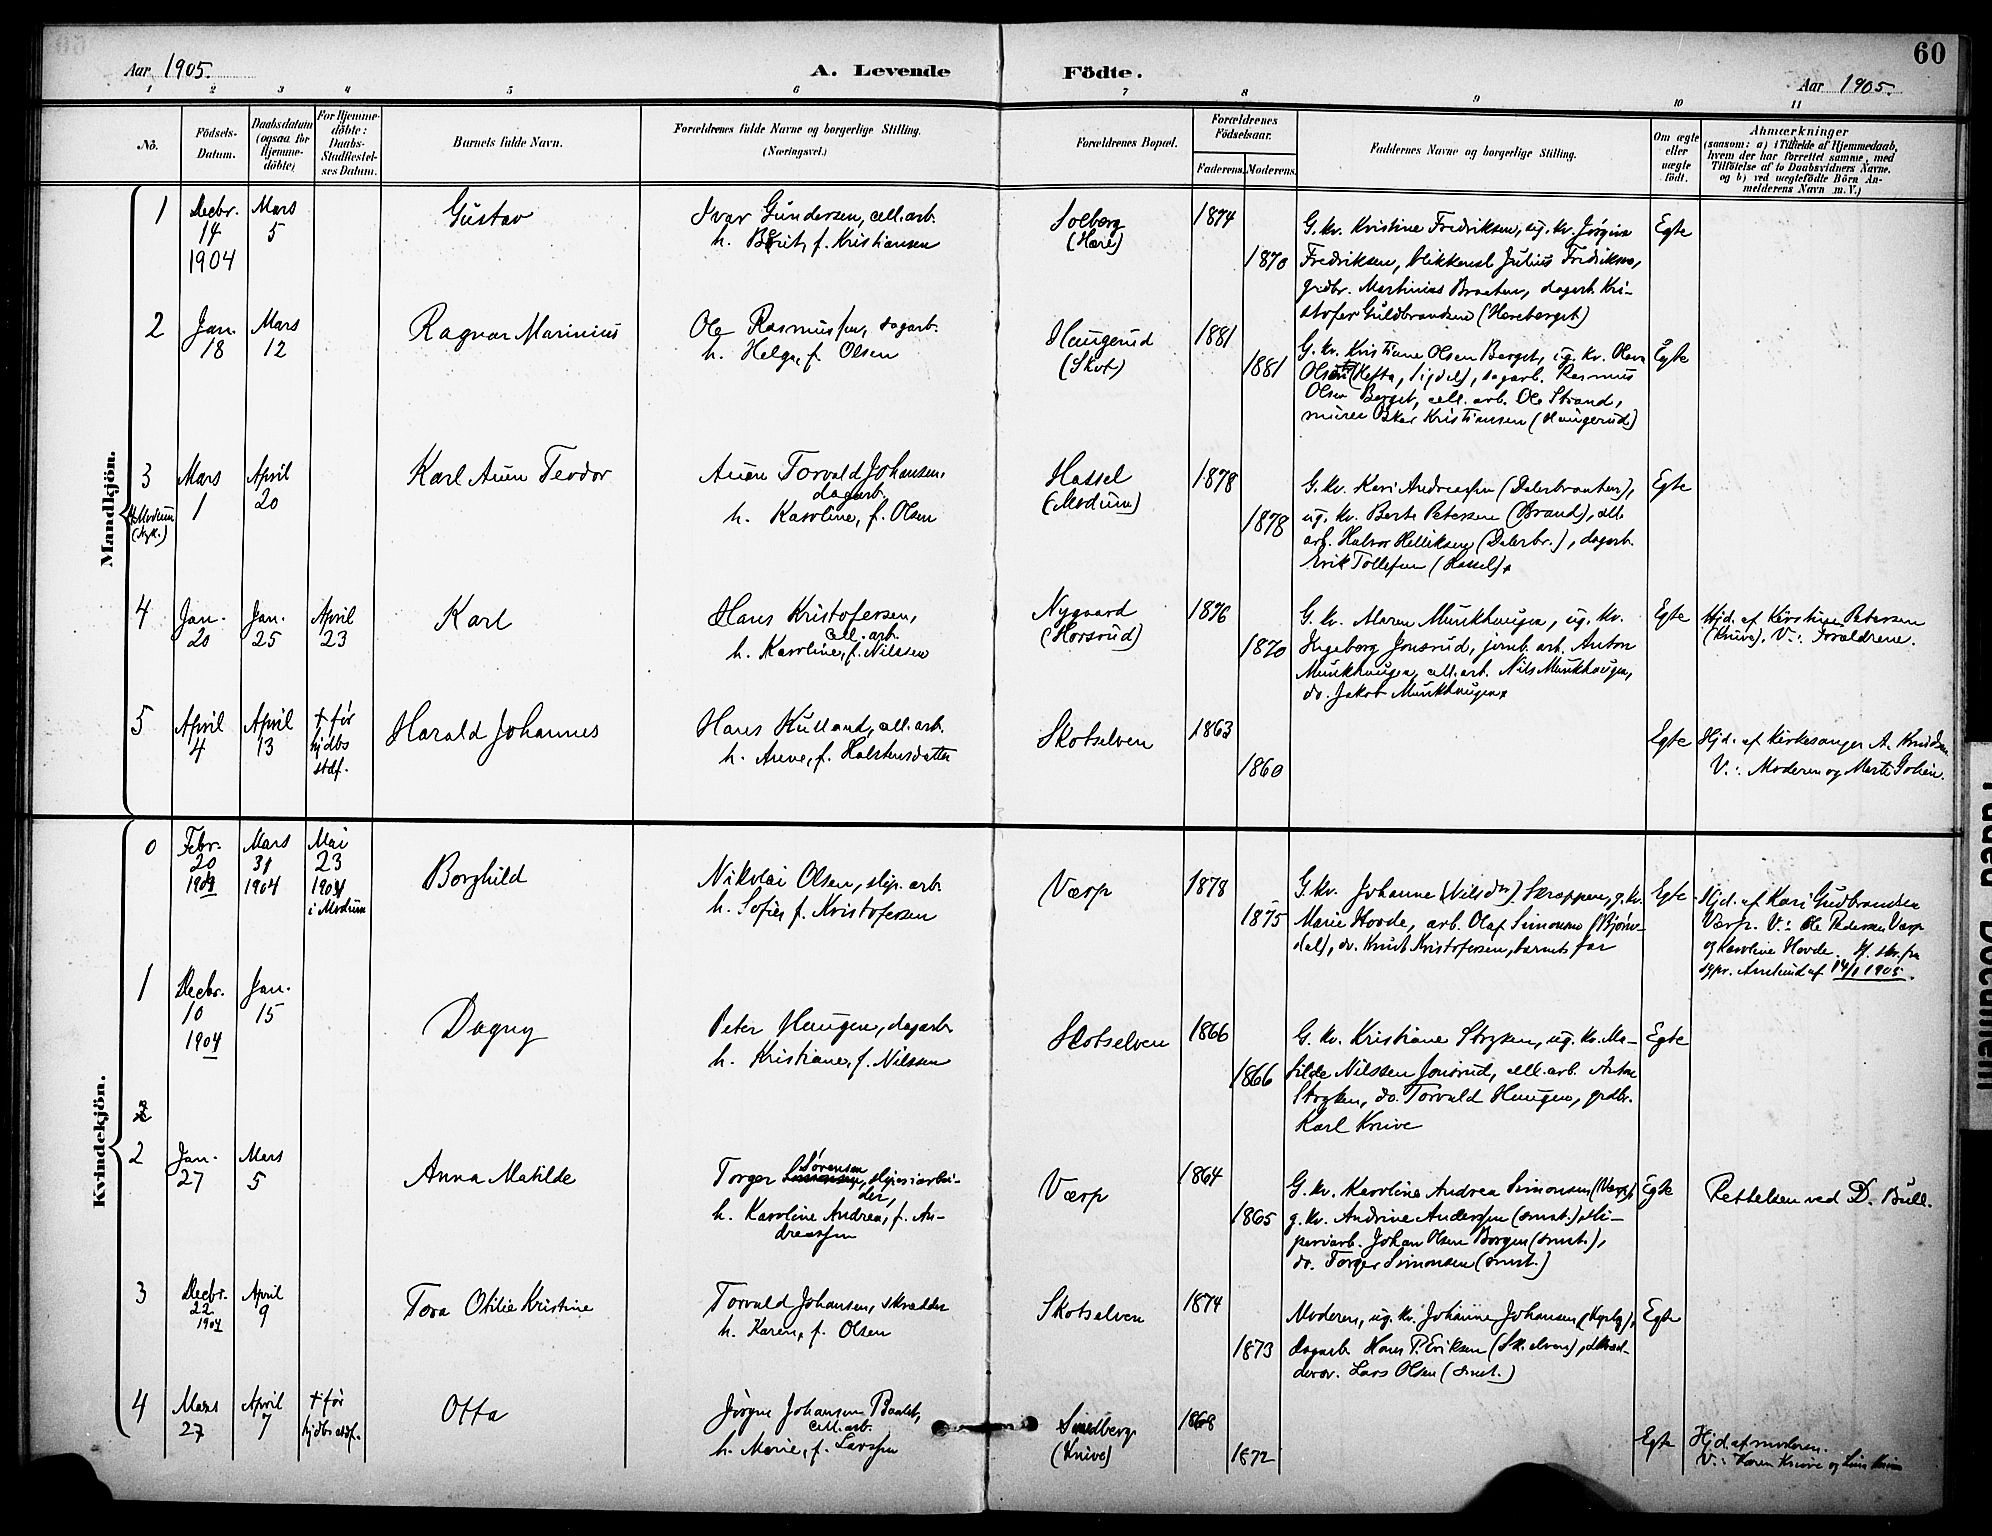 60
Aar 1905.
A. Levende Födte.
Aar 1905.
1 2 3 4 5 6 7 8 9 10 11
No.
Födsels-
Datum.
Daabsdatum
(ogsaa for
Hjemme-
döbte)
For Hjemme-
döbte:
Daabs-
Stadfæstel-
ses Datum.
Barnets fulde Navn.
Forældrenes fulde Navne og borgerlige Stilling.
(Næringsvei.)
Forældrenes Bopæl.
Forældrenes
Födselsaar.
Faderens. Moderens.
Faddernes Navne og borgerlige Stilling.
Om ægte
eller
uægte
födt.
Anmærkninger
(saasom: a) i Tilfælde af Hjemmedaab,
hvem der har forrettet samme, med
Tilföielse af to Daabsvidners Navne.
og b) ved uægtefödte Börn An-
melderens Navn m. V.)
Mandkjön.
1
Decbr.
14
1904
Mars
5
Gustav
Ivar Gundersen, cell.arb.
h. Berit, f. Kristiansen
Solberg
(Hære)
1874
1870
G. kv. Kristine Fredriksen, ug. kv. Jørgine
Fredriksen, blikkensl. Julius Fredriksen,
grdbr. Martinius Braaten, dagarb. Kri-
stofer Guldbrandsen (Hæreberget)
Egte
2
Jan.
18
Mars
12
Ragnar Marinius
Ole Rasmussen, dagarb.
h. Helga, f. Olsen
Haugerud
(Skot)
1881
1881
G. kv. Kristiane Olsen Berget, ug. kv. Olava
Olsen (Hefta, Sigdal), dagarb. Rasmus
Olsen Berget, cell. arb. Ole Strand,
murer Oskar Kristiansen (Haugerud)
Egte
3
(Modum
Nyk.)
Mars
1
April
20
Karl Aun Teodor
Aun Torvald Johansen,
dagarb.
h. Karoline, f. Olsen
Hassel
(Modum)
1878
1878
G. kv. Kari Andreassen (Dalerbraaten),
ug. kv. Berte Petersen (Brand), cell.
arb. Halvor Helliksen (Dalerbr.), dagarb.
Erik Tollefsen (Hassel).
Egte
4
Jan.
20
Jan.
25
April
23
Karl
Hans Kristofersen,
cell. arb.
h. Karoline, f. Nilssen
Nygaard
(Horsrud)
1876
1870
G. kv. Maren Munkhaugen, ug. kv.
Ingeborg Jonsrud, jernb. arb. Anton
Munkhaugen, cell. arb. Nils Munkhaugen,
do. Jakob Munkhaugen.
Egte
Hjd. af Kirstine Petersen
(Knive). V.: Forældrene.
5
April
4
April
13
† før
hjdbs
stdf.
Harald Johannes
Hans Kulland, cell. arb.
h. Anne, f. Halstensdatter
Skotselven
1863
1860
Egte
Hjd. af Kirkesanger A. Knudsen
V.: Moderen og Marte Golien.
Kvindekjön.
0
Febr.
20
1904
Mars
31
1904
Mai
23
1904
i Modum
Borghild
Nikolai Olsen, slip. arb
h. Sofie, f. Kristofersen
Værp
1878
1875
G. kv. Johanne (Nilsdr.) Skroppen, g. kv.
Marie Hovde, arb. Olaf Simonsen (Bjørn-
dal), do. Knut Kristofersen, barnets far
Egte
Hjd. af Kari Gudbrandsen
Værp. V.: Ole Pedersen Værp
og Karoline Hovde. Cf. skr. fra
sgpr. Amlund af 14/1 1905.
1
Decbr.
10
1904
Jan.
15
Dagny
Peter Haugen, dagarb
h. Kristiane, f. Nilssen
Skotselven
1866
1866
G. kv. Kristiane Stryken, ug. kv. Ma-
tilde Nilssen Jonsrud, cell. arb. Anton
Stryken, do. Torvald Haugen, grdbr.
Karl Knive
Egte
2
2
Jan.
27
Mars
5
Anna Matilde
Sørensen
Torger Simonsen, sliperiarbei-
der,
h. Karoline Andrea, f. An-
dreassen
Værp
1864
1865
G. kv. Karoline Andrea Simonsen (Værp),
g. kv. Andrine Anderssen (smst.), sli-
periarb. Johan Olsen Borgen (smst.),
do. Torger Simonsen (smst.)
Egte
Rettelsen ved D. Bull.
3
Decbr.
22
1904
April
9
Tora Otilie Kristine
Torvald Johansen, skrædder
h. Karen, f. Olsen
Skotselven
1874
1873
Moderen, ug. kv. Johanne Johansen,
dagarb. Hans P. Eriksen (Sk.elven), skræd-
dersv. Lars Olsen (smst.)
Egte
4
Mars
27
April
7
† før
hjdbs stdf.
Otta
Jørgen Johansen Baalet,
cell. arb.
h. Marie, f. Larssen
Sundberg
(Knive)
1868
1872
Egte
Hjd. af moderen.
V.: Karen Knive og